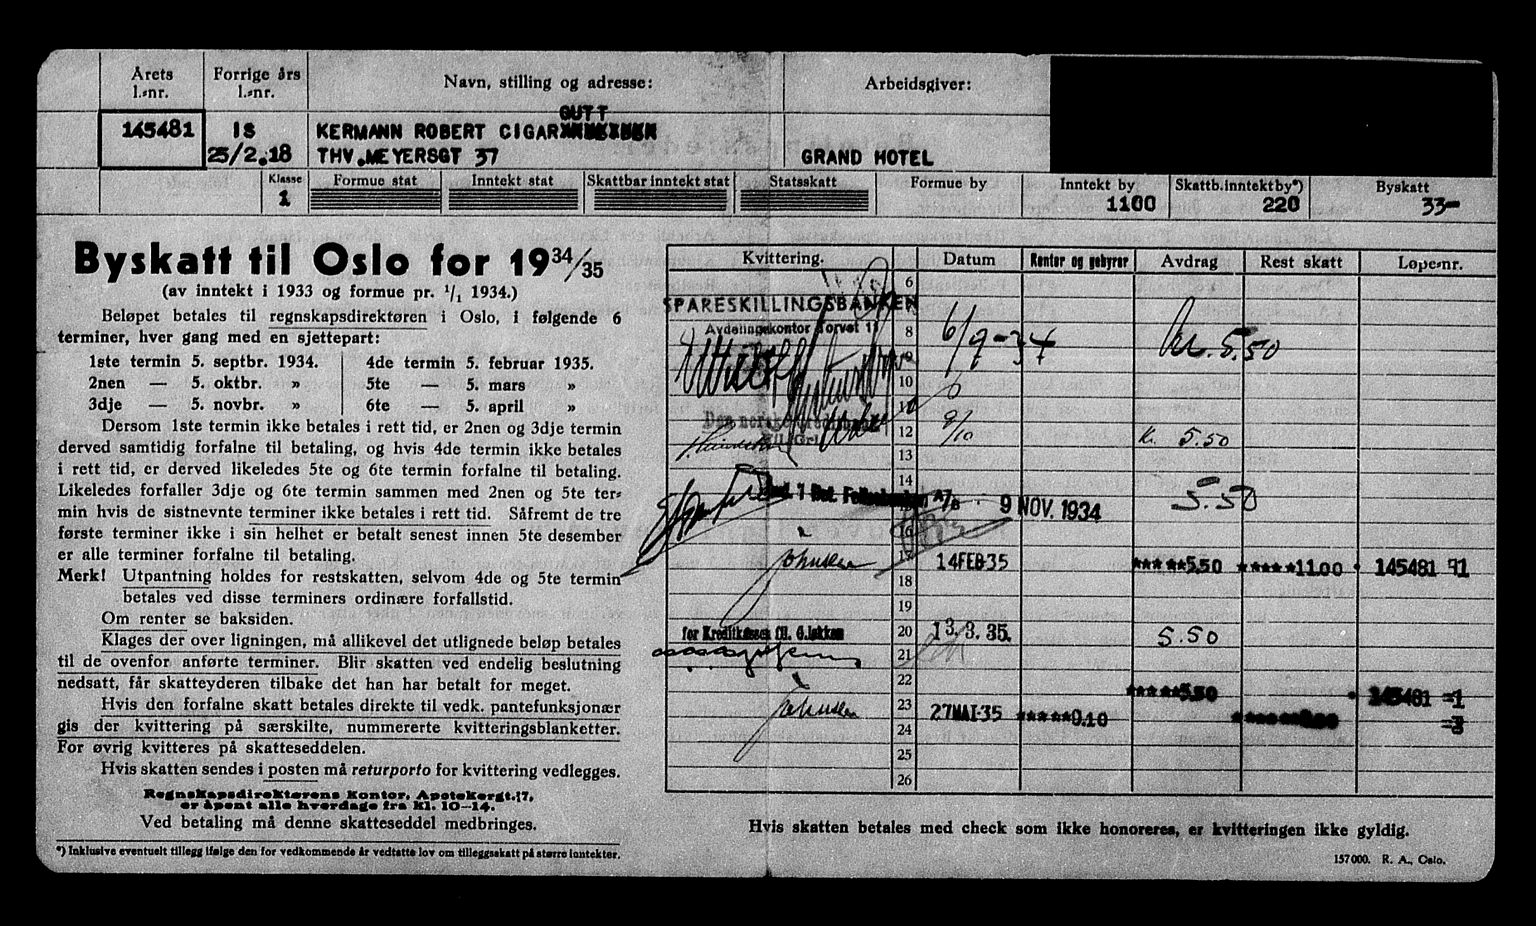 Årets l.-nr.
Forrige års l.-nr.
Navn, stilling og adresse:
Arbeidsgiver:
GUTT
145481 IS KERMANN ROBERT CIGAR
25/2.18 THV.MEYERSGT 37 GRAND HOTEL
Klasse Formue stat Inntekt stat Skattbar inntekt stat Statsskatt Formue by Inntekt by Skattb.inntekt by*) Byskatt
1 1100 220 33-
Byskatt til Oslo for 1934/35
(av inntekt i 1933 og formue pr. 1/1 1934.)
Beløpet betales til regnskapsdirektøren i Oslo, i følgende 6
terminer, hver gang med en sjettepart:
1ste termin 5. septbr. 1934. 4de termin 5. februar 1935.
2nen — 5. oktbr. » 5te — 5. mars »
3dje — 5. novbr. » 6te — 5. april »
Dersom 1ste termin ikke betales i rett tid, er 2nen og 3dje termin
derved samtidig forfalne til betaling, og hvis 4de termin ikke betales
i rett tid, er derved likeledes 5te og 6te termin forfalne til betaling.
Likeledes forfaller 3dje og 6te termin sammen med 2nen og 5te ter-
min hvis de sistnevnte terminer ikke betales i rett tid. Såfremt de tre
første terminer ikke i sin helhet er betalt senest innen 5te desember
er alle terminer forfalne til betaling.
Merk! Utpantning holdes for restskatten, selvom 4de og 5te termin
betales ved disse terminers ordinære forfallstid.
Om renter se baksiden.
Klages der over ligningen, må allikevel det utlignede beløp betales
til de ovenfor anførte terminer. Blir skatten ved endelig beslutning
nedsatt, får skatteyderen tilbake det han har betalt for meget.
Hvis den forfalne skatt betales direkte til vedk. pantefunksjonær
gis der kvittering på særskilte, nummererte kvitteringsblanketter.
For øvrig kvitteres på skatteseddelen.
Hvis skatten sendes i posten må returporto for kvittering vedlegges.
Regnskapsdirektørens Kontor, Apotekergt. 7,
er åpent alle hverdage fra kl. 10-14.
Ved betaling må denne skatteseddel medbringes.
*) Inklusive eventuelt tillegg ifølge den for vedkommende år vedtatte lov om tilleggsskatt på større inntekter.
Kvittering. Datum Renter og gebyrer Avdrag Rest skatt Løpe-nr.
6
SPARESKILLINGSBANKEN
Avdelingskontor Torvet 11
8 6/9-34 Kr. 5.50
10
Den norske Creditbank
12 9/10 Kr. 5.50
13
14
9 NOV. 1934 5.50
16
17 Johnsen 14 FEB 35 *****5.50 *****11.00 145481 91
18
19
for Kreditkassen fil. G.løkken 20 13.3.35. 5.50
21
22 *****5.50 145481 -1
23 Johnsen 27 MAI 35 *****0.10 -3
24
25
26
Hvis skatten betales med check som ikke honoreres, er kvitteringen ikke gyldig.
157000. R. A., Oslo.